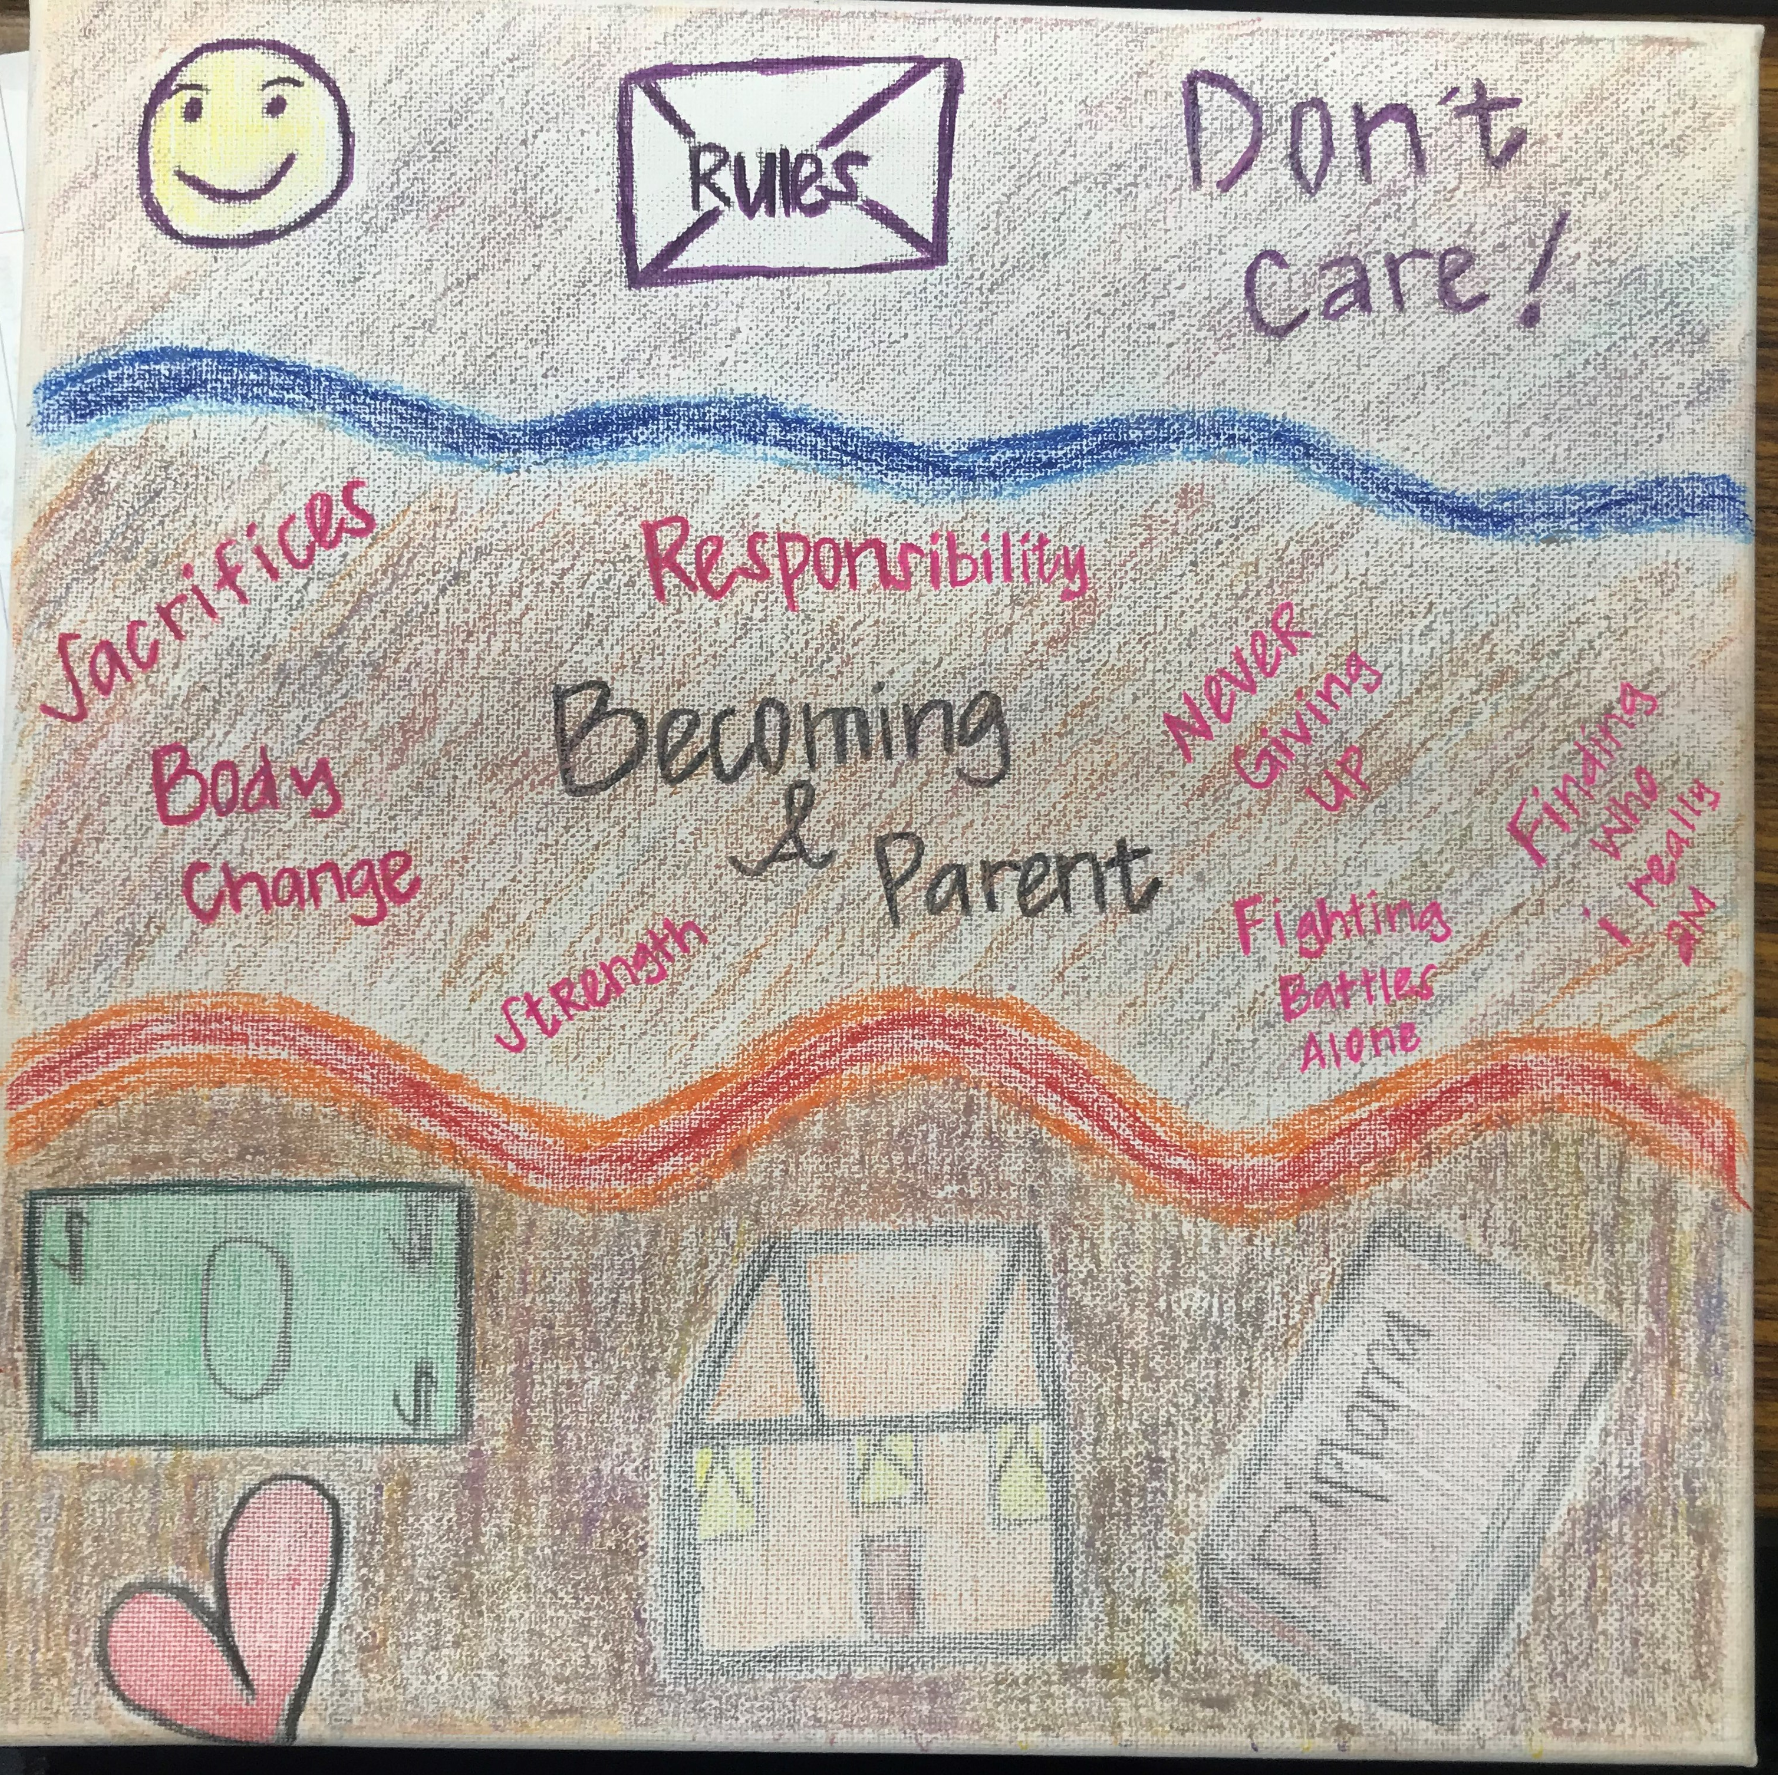 Rules
Don't
Care!
Sacrifices
Responsibility
Never
Giving
Up
Finding
Who
i really
aM
Body
Change
Becoming
&
Parent
Strength
Fighting
Battles
Alone
$ $
0
$ $
Diploma